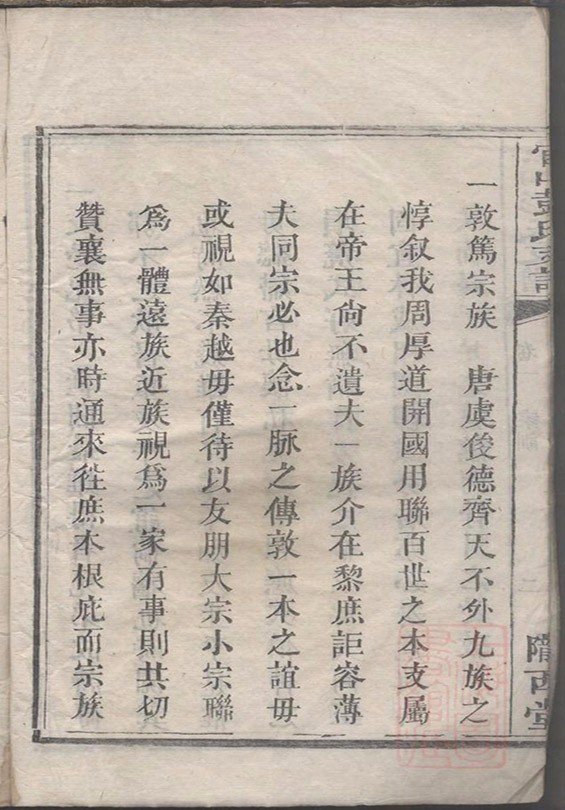 官山彭氏支譜
卷
二
隴西堂
一敦篤宗族　唐虞俊德齊天不外九族之
惇叙我周厚道開國用聯百世之本支屬
在帝王尙不遺夫一族介在黎庶詎容薄
夫同宗必也念一脉之傳敦一本之誼毋
或視如秦越毋僅待以友朋大宗小宗聯
爲一體遠族近族視爲一家有事則共切
贊襄無事亦時通來徃庶本根庇而宗族